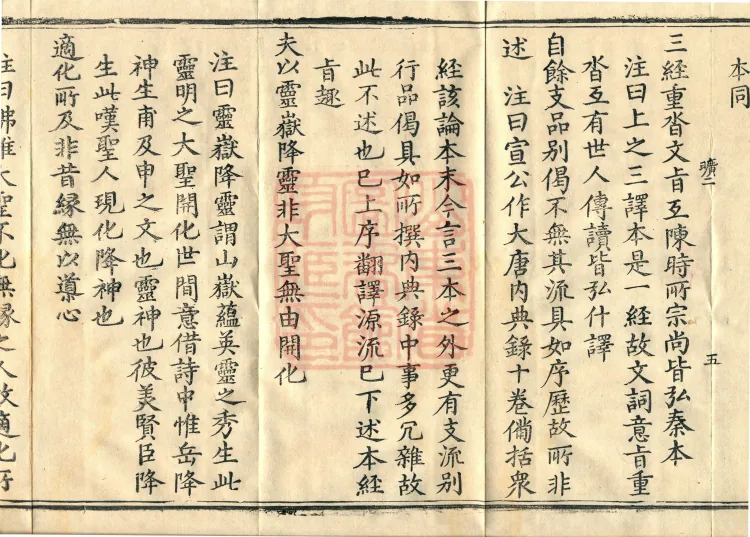 本同
曠二
五
三經重沓文旨互陳時所宗尚皆弘秦本
注曰上之三譯本是一經故文詞意旨重
沓互有世人傳讀皆弘什譯
自餘支品別偈不無其流具如序歷故所非
述 注曰宣公作大唐内典錄十卷備括衆
經該論本末今言三本之外更有支流別
行品偈具如所撰内典錄中事多冗雜故
此不述也巳上序翻譯源流巳下述本經
旨趣
夫以靈嶽降靈非大聖無由開化
注曰靈嶽降靈謂山嶽蘊英靈之秀生此
靈明之大聖開化世間意借詩中惟岳降
神生甫及申之文也靈神也彼美賢臣降
生此嘆聖人現化降神也
適化所及非昔緣無以導心
注曰佛雖大聖不化無緣之人故適化所